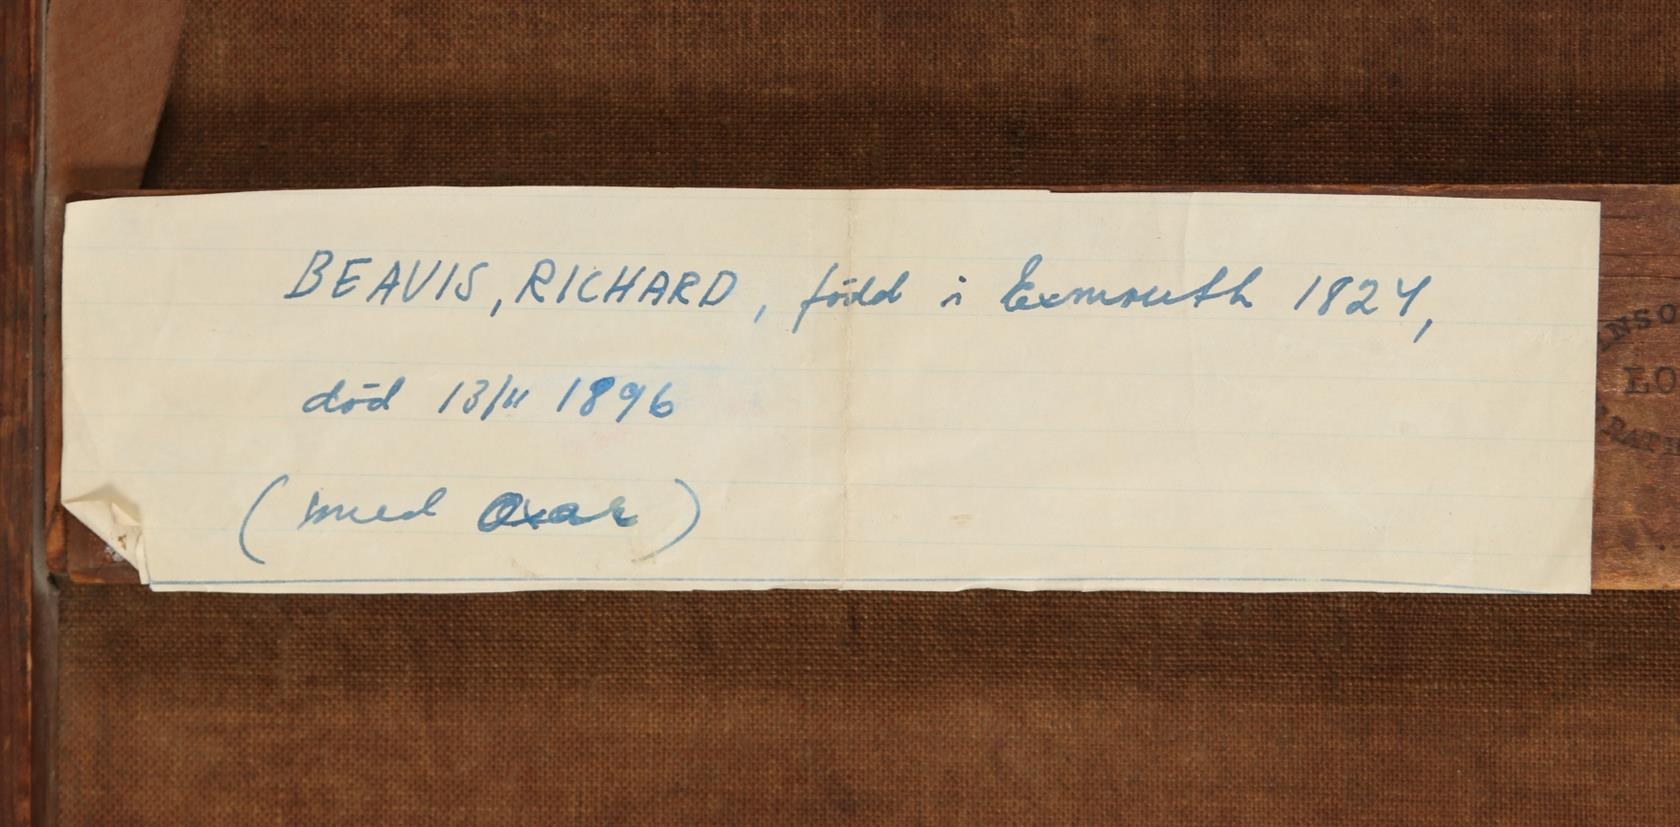 BEAVIS, RICHARD, född i Exmouth 1824,
död 13/11 1896
(med Oxar)
NSO
LO
RAT